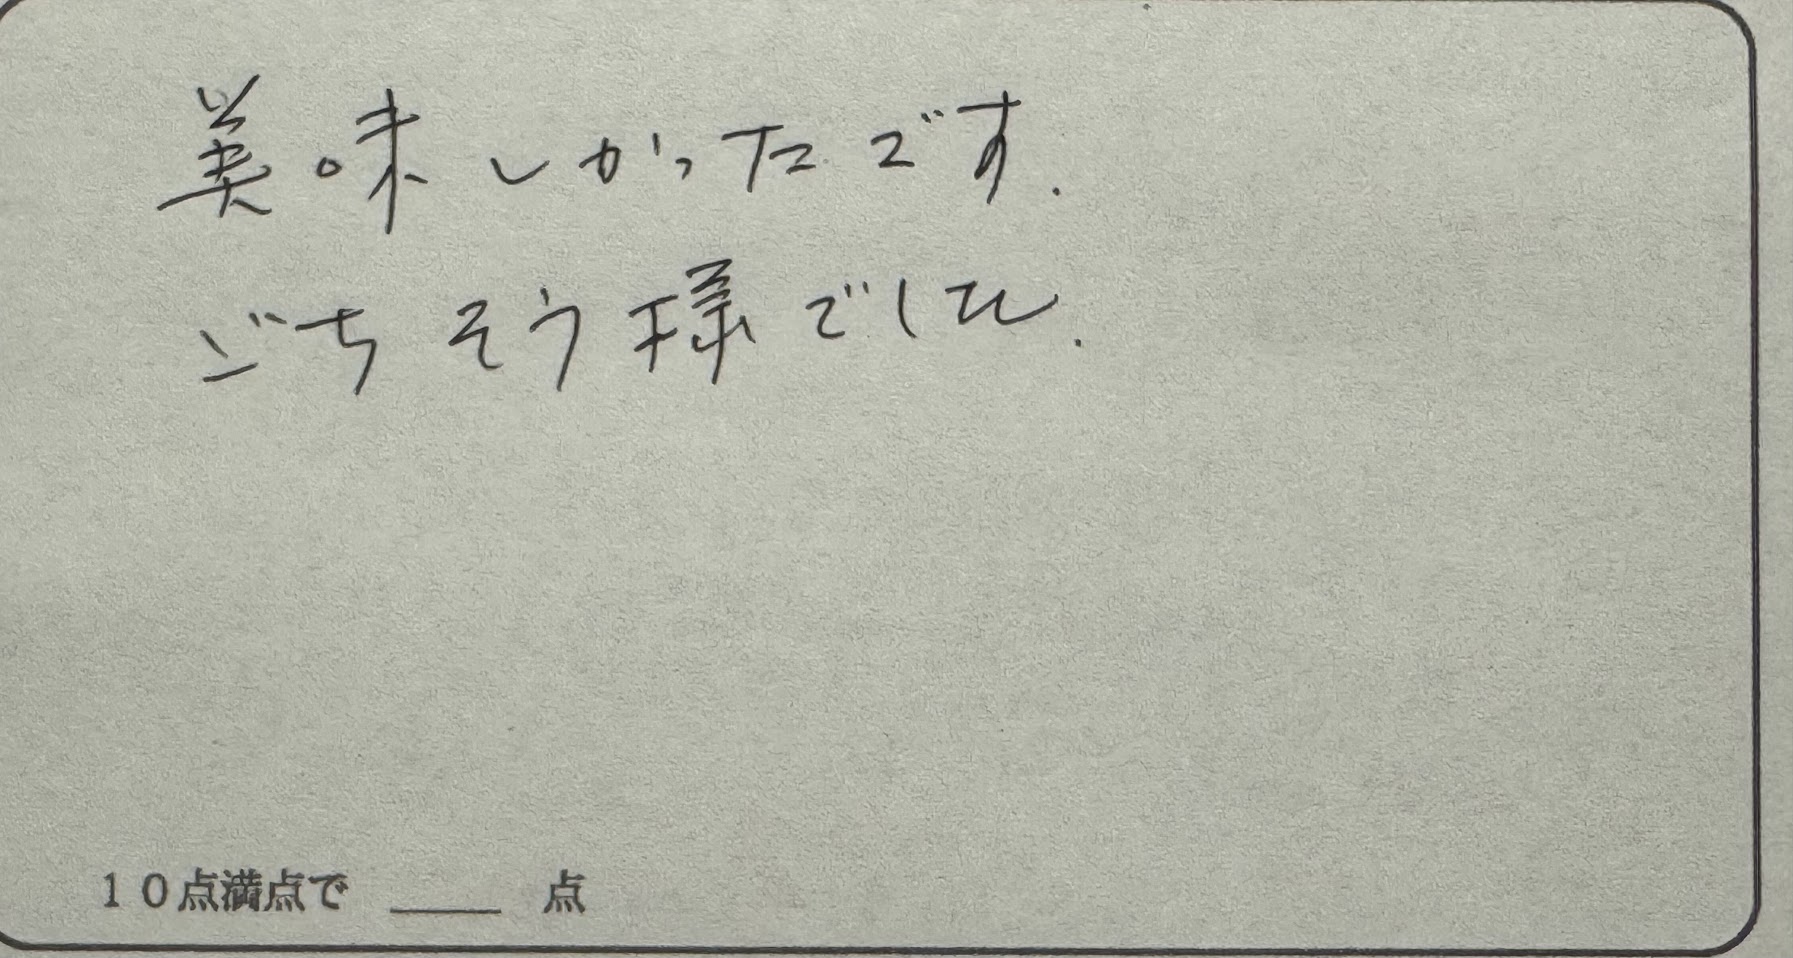 美味しかったです.
ごちそう様でした.
10点満点で ____ 点